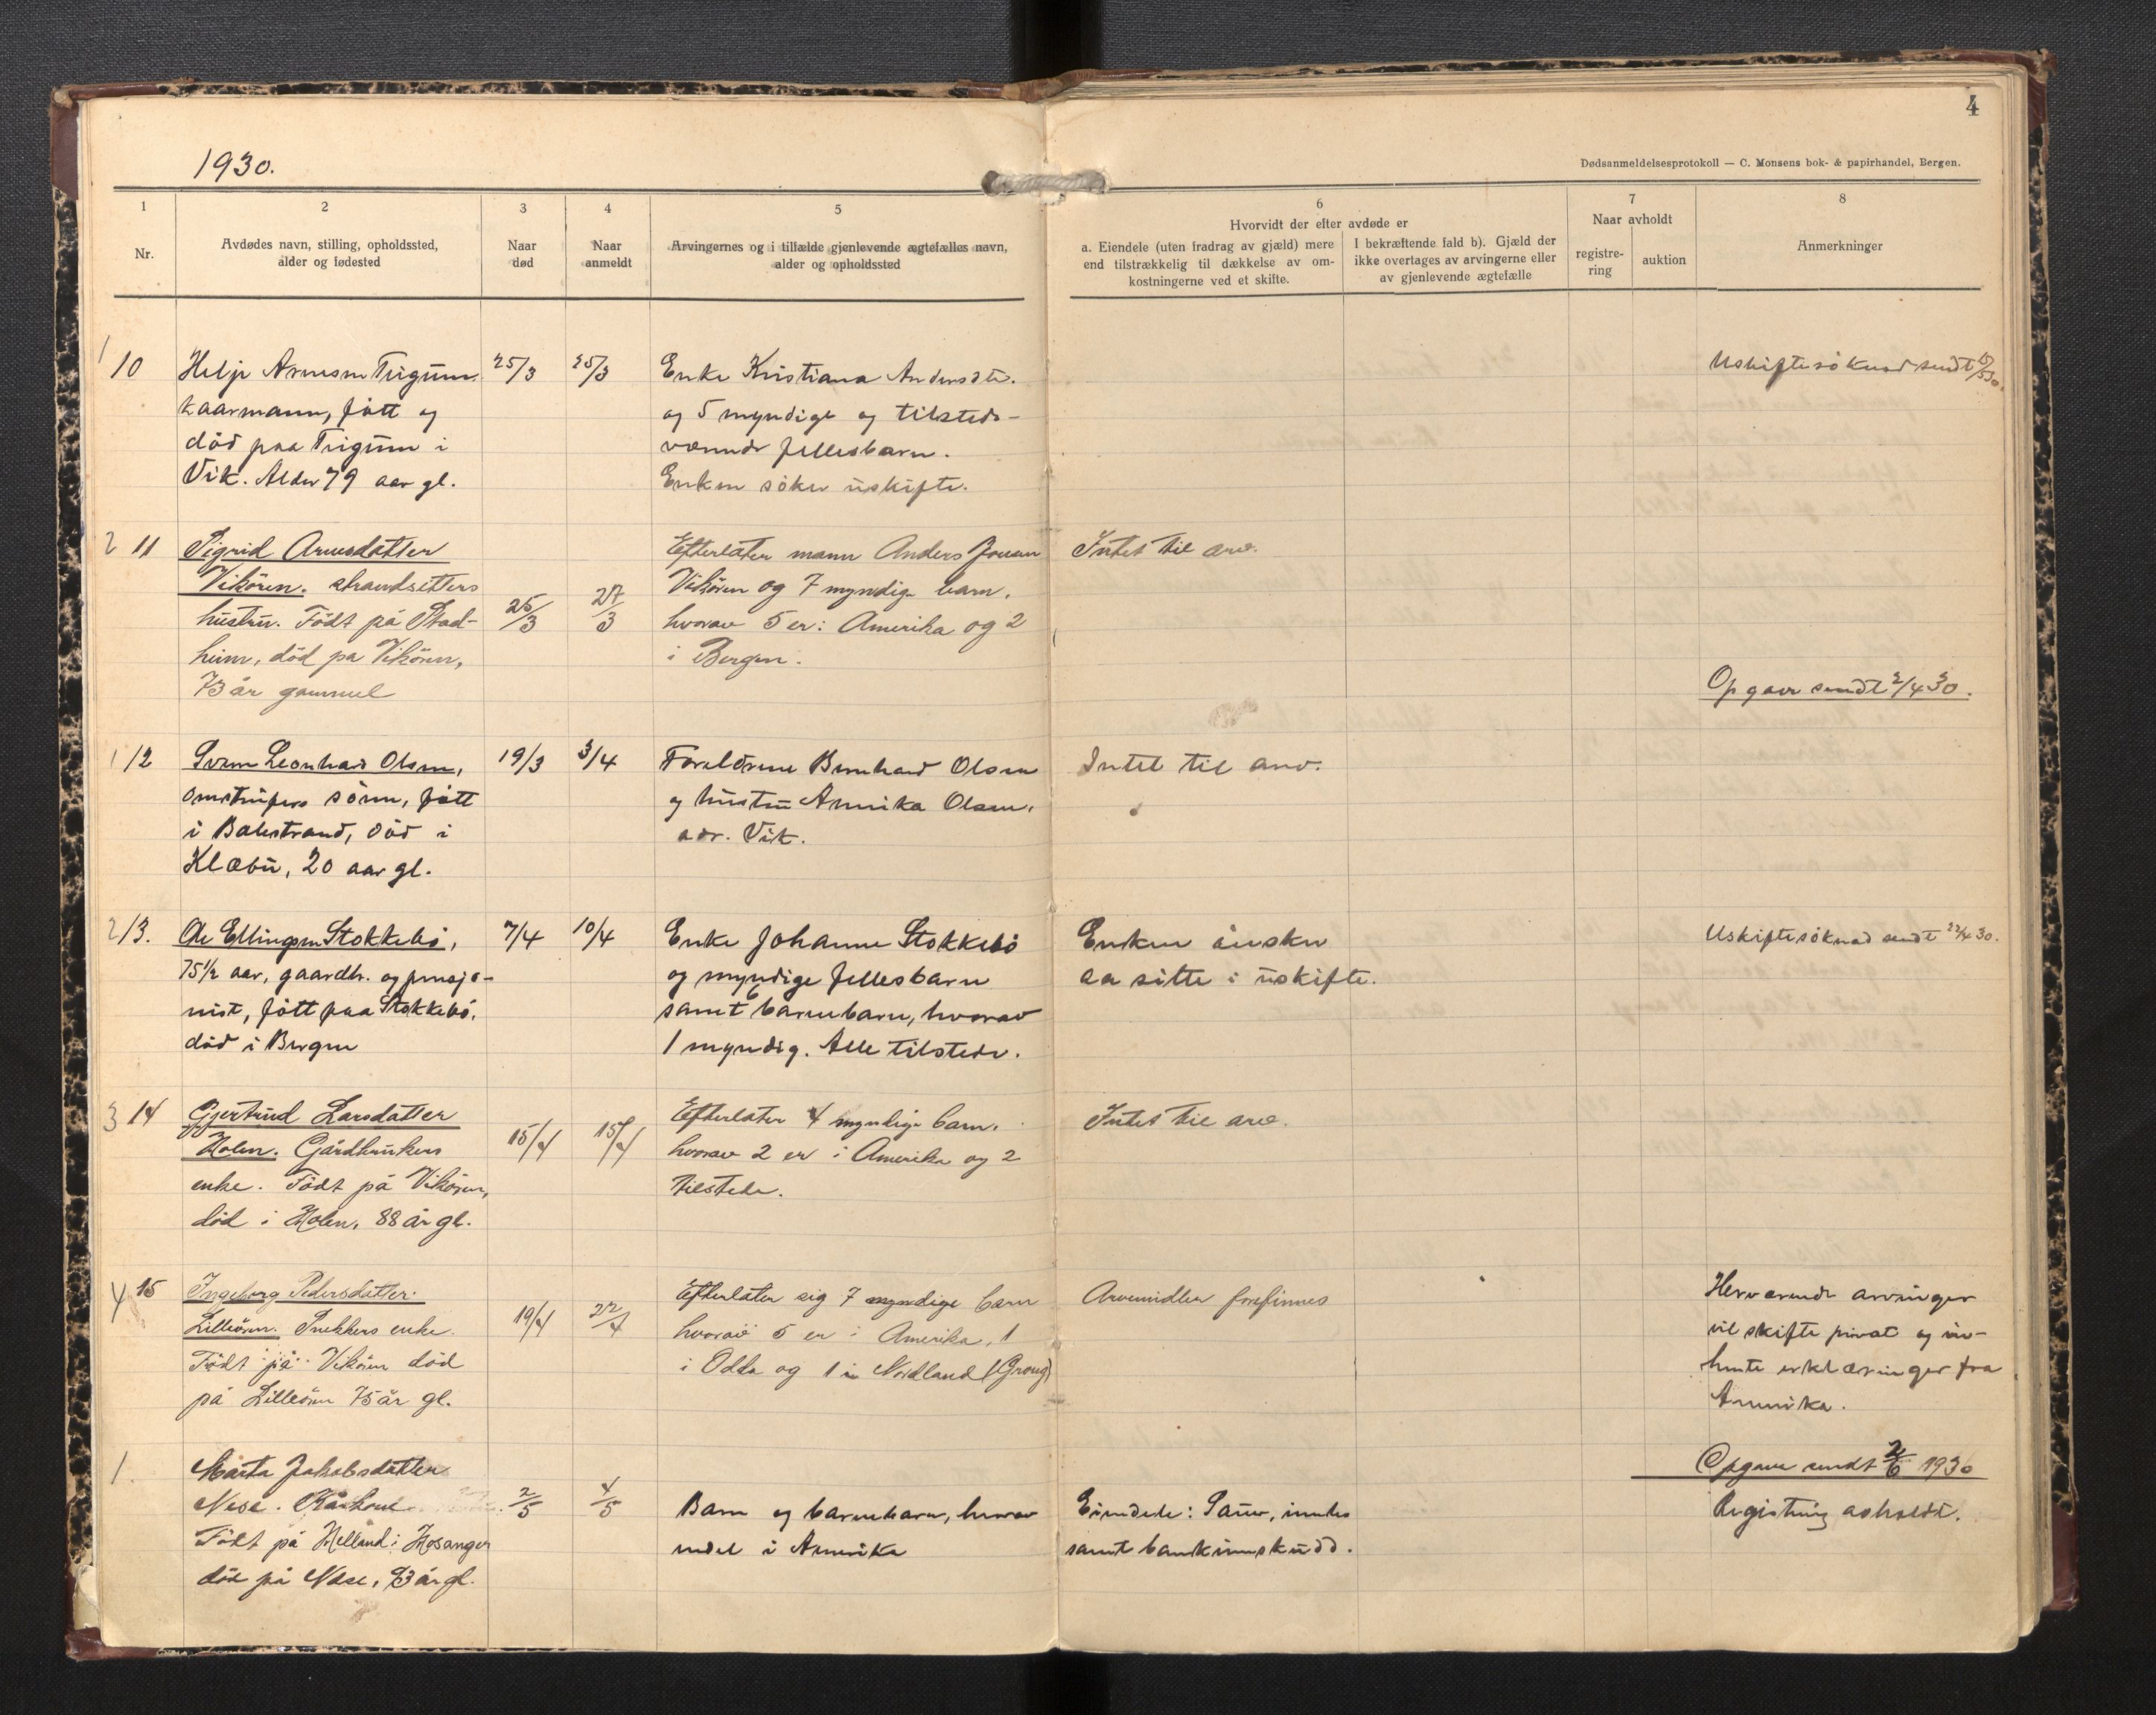 4
1930.
Dødsanmeldelsesprotokoll — C. Monsens bok- & papirhandel, Bergen.
1
2
3
4
5
6
7
8
Nr.
Avdødes navn, stilling, opholdssted,
alder og fødested
Naar
død
Naar
anmeldt
Arvingernes og i tilfælde gjenlevende ægtefælles navn,
alder og opholdssted
Hvorvidt der efter avdøde er
a. Eiendele (uten fradrag av gjæld) mere
end tilstrækkelig til dækkelse av om-
kostningerne ved et skifte.
I bekræftende fald b). Gjæld der
ikke overtages av arvingerne eller
av gjenlevende ægtefælle
Naar avholdt
registre-
ring
auktion
Anmerkninger
1
10
Helje Arnesen Trigum
kaarmann, født og
död paa Trigum i
Vik. Alder 79 aar gl.
25/3
25/3
Enke Kristiana Andersdtr.
og 5 myndige og tilsteds-
værende fellesbarn.
Enken söker uskifte.
Uskiftesöknad sendt
2 11
Sigrid Arnesdatter
Vikören. strandsitters
hustru. Födt på Stad-
heim, död pa Vikören,
73 år gammel
25/3
27/3
Efterlater mann Anders Jonsen
Vikören og 7 myndige barn,
hvorav 5 er i Amerika og 2
i Bergen.
Intet til arv.
Opgave sendt 2/4 30.
1 12
Svein Leonhard Olsen,
omstreifers sönn, født
i Balestrand, död i
Klæbu, 20 aar gl.
19/3
3/4
Foreldrene Bernhard Olsen
og hustru Annika Olsen,
adr. Vik.
Intet til arv.
2 13.
Ole Ellingsen Stokkebö,
75½ aar, gaardbr. og pensjo-
nist, født paa Stokkebö,
död i Bergen
7/4
10/4
Enke Johanne Stokkebö
og myndige fellesbarn
samt 6 barnebarn, hvorav
1 myndig. Alle tilstede.
Enken önsker
aa sitte i uskifte.
Uskiftesöknad sendt 22/4 30.
3 14
Gjertrud Larsdatter
Holen. Gårdbrukers
enke. Födt på Vikören,
död i Holen, 88 år gl.
15/4
15/4
Efterlater 4 myndige barn,
hvorav 2 er i Amerika og 2
tilstede.
Intet til arv.
4 15
Ingeborg Pedersdatter
Lilleören. Snekkers enke.
Födt på Vikören död
på Lilleören 75 år gl.
19/4
22/4
Efterlater sig 7 myndige barn
hvorav 5 er i Amerika, 1
i Odda og 1 i Nordland (Grong)
Arvemidler forefinnes
Herværende arvinger
vil skifte privat og inn-
hente erklæringer fra
Amerika.
Opgave sendt 2/6 1930
1.
Marta Jakobsdatter
Nese.
Födt på Helland i Hosanger
död på Nese, 73 år gl.
2/5
4/5
Barn og barnebarn, hvorav
endel i Amerika
Eiendele: Sauer, innbo
samt bankinnskudd.
Registrering avholdt.